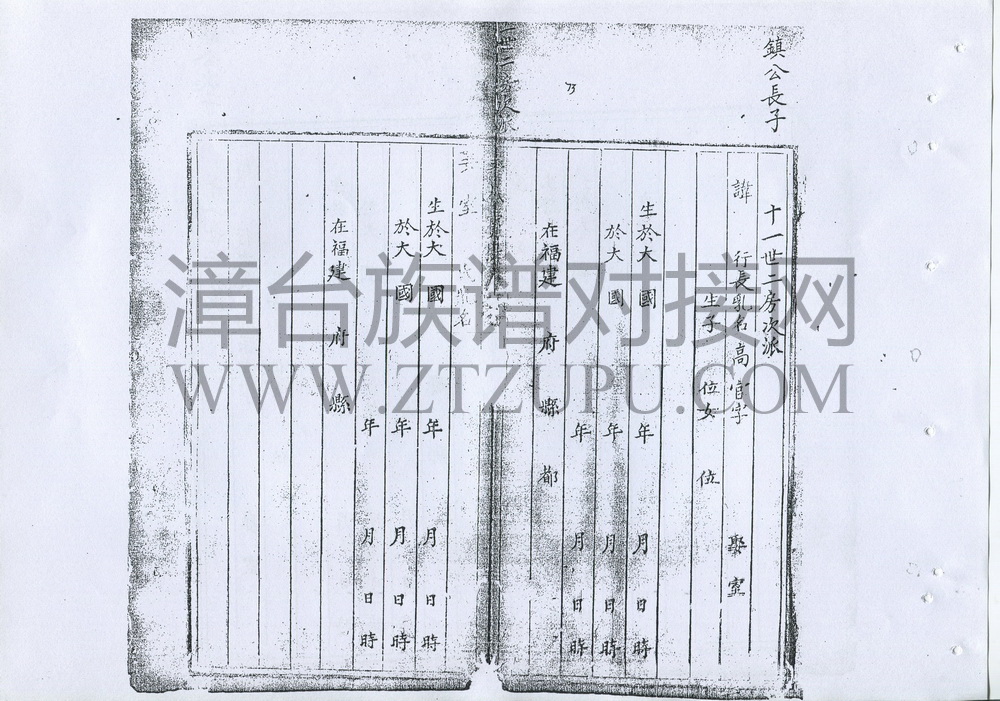 鎮公長子
十一世二房次派
諱 行長乳名高官字 娶室
生子 位女 位
生於大 國 年 月 日 時
於大 國 年 月 日 時
年 月 日 時
在福建 府 縣 都
室 名
生於大 國 年 月 日 時
於大 國 年 月 日 時
年 月 日 時
在福建 府 縣
漳台族谱对接网
WWW.ZTZUPU.COM